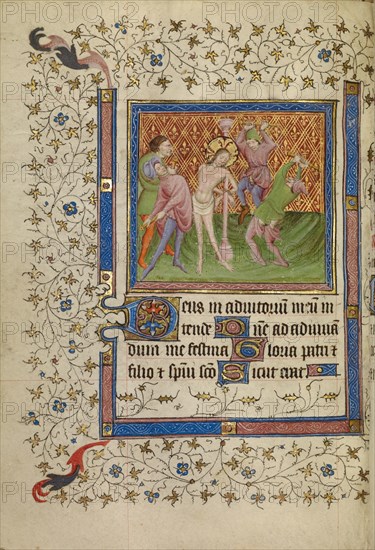 Deus in adiutoriū meū in
tende Dn̄e ad adiuuā
dum me festina Gloria patri ⁊
filio ⁊ spūi scō Sicut erat